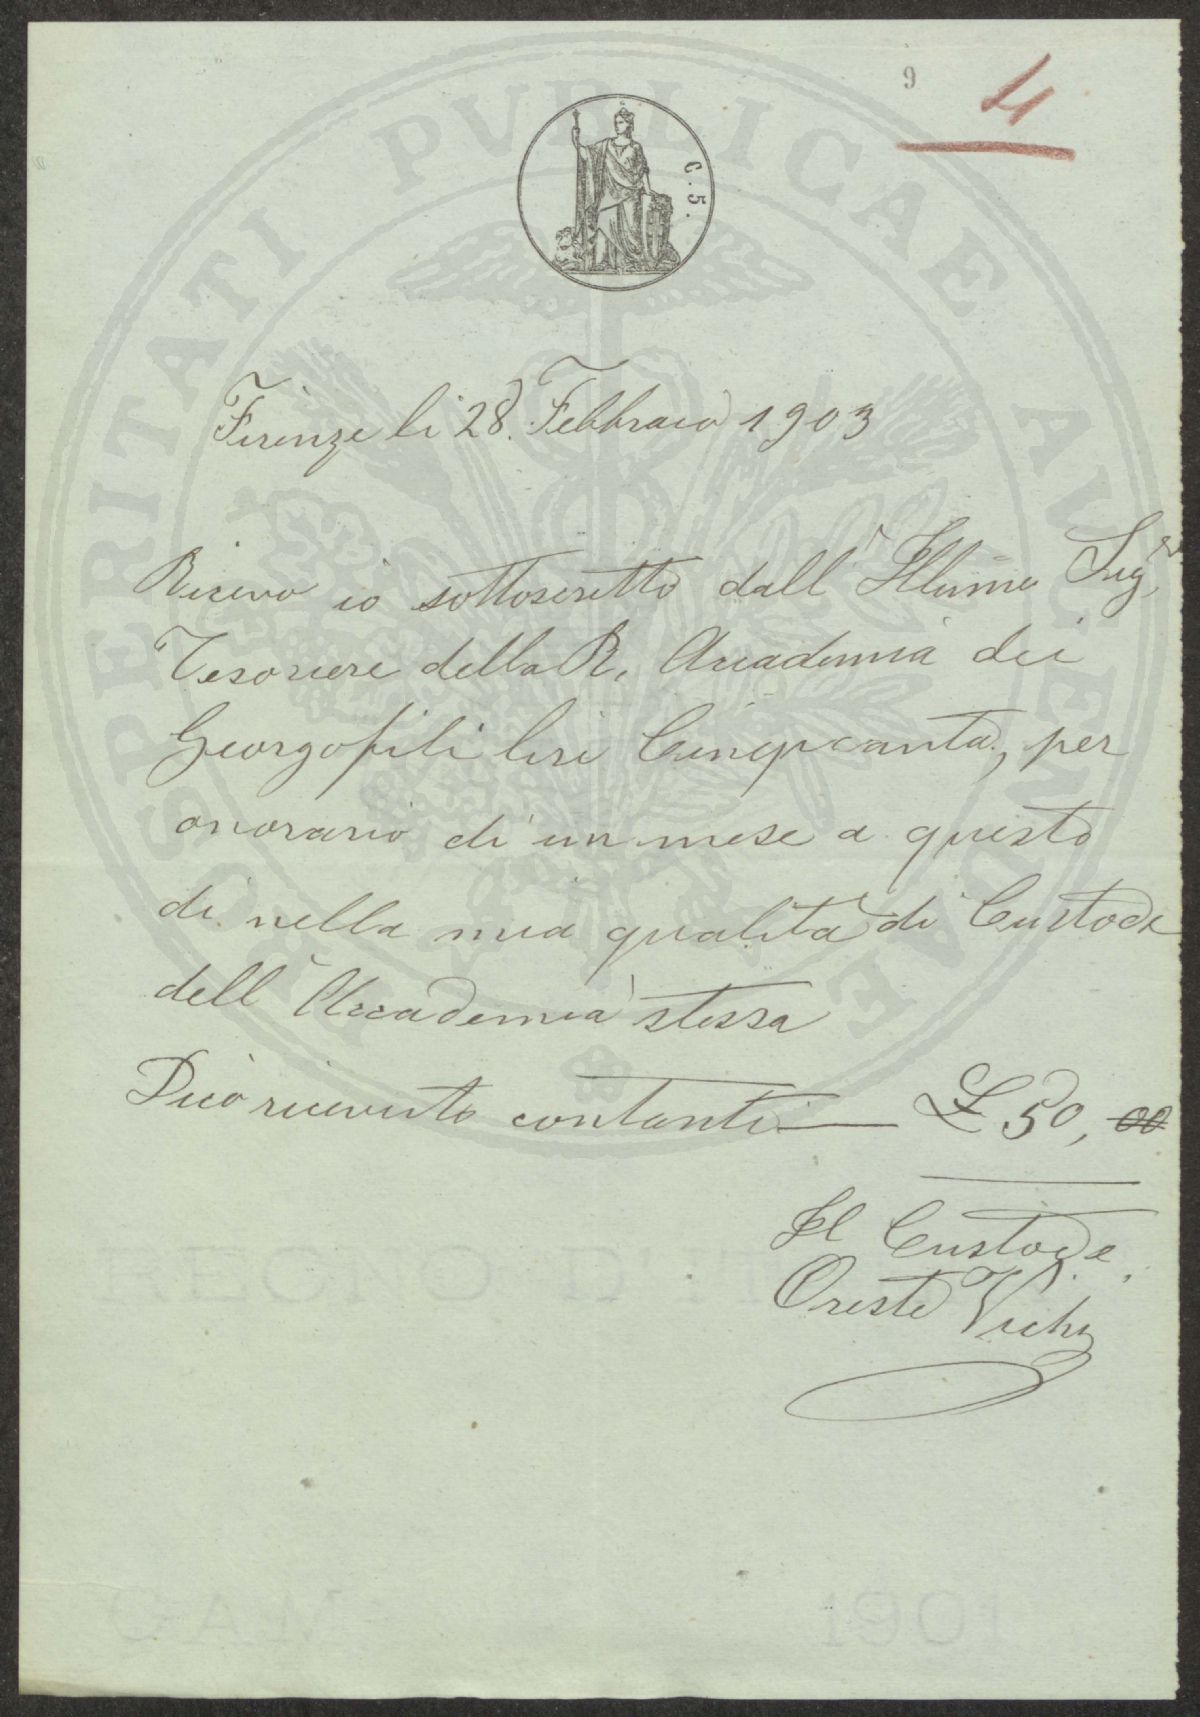 9
4
C. 5.
PROSPERITATI PVBLICAE AVGENDAE
Firenze li 28. Febbraio 1903
Ricevo io sottoscritto dall' Illumo Sigr
Tesoriere della R. Accademia dei
Georgofili lire Cinquanta, per
onorario di un mese a questo
di nella mia qualità di Custode
dell' Accademia stessa
Dico ricevuto contanti — £ 50, 00
Il Custode
Oreste Vichi
REGNO D'IT
1901